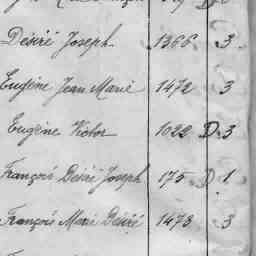 Désiré Joseph 1366 3
Eugène Jean Marie 1472 3
Eugène Victor 1022 D 3
François Désiré Joseph 175 D 1
François Marie Désiré 1473 3